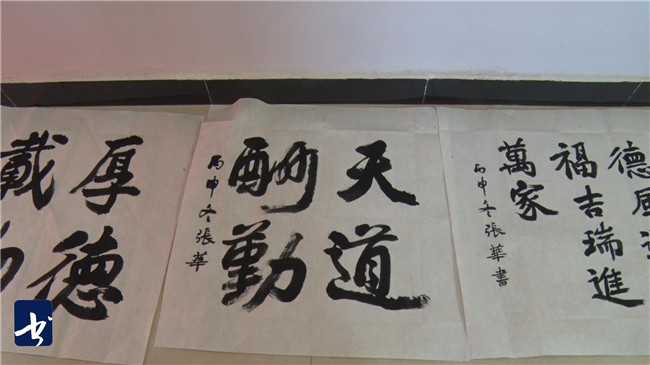 厚德
天道
酬勤
丙申冬張華
德風
福吉瑞進
萬家
丙申冬張華書
书